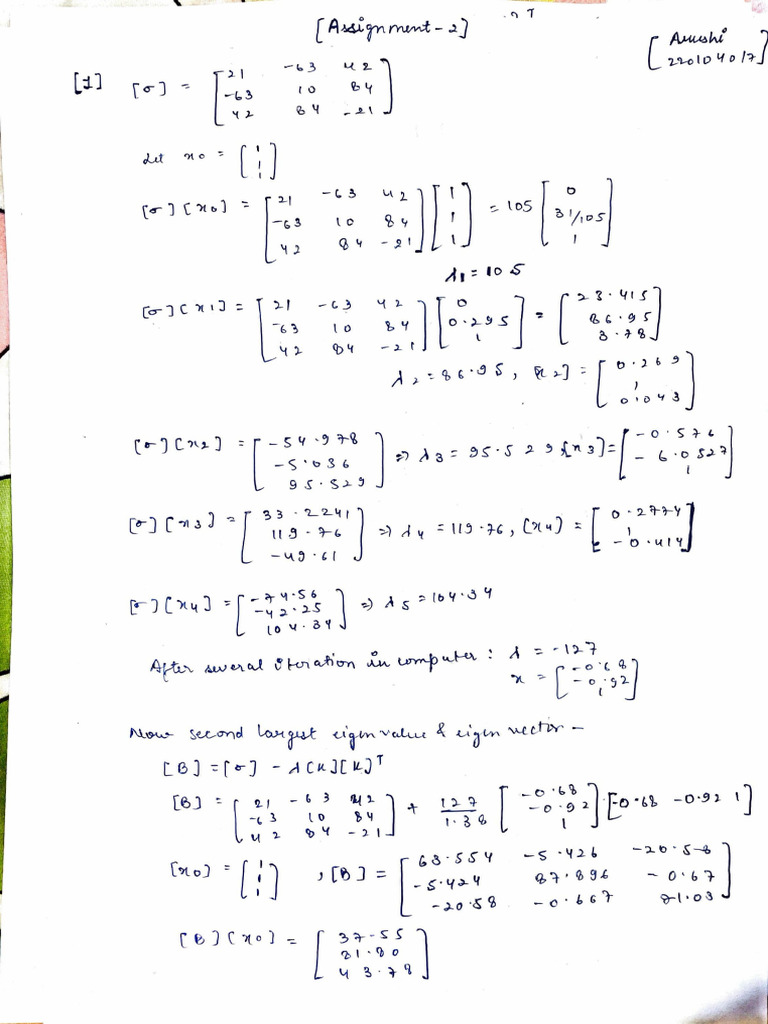 [Assignment-2]
[Anushi
220104017]
[1] [σ] = [21 -63 42
-63 10 84
42 84 -21]
Let x0 = [1
1
1]
[σ][x0] = [21 -63 42
-63 10 84
42 84 -21] [1
1
1] = 105 [0
31/105
1]
λ1 = 105
[σ][x1] = [21 -63 42
-63 10 84
42 84 -21] [0
0.295
1] = [23.415
86.95
3.78]
λ2 = 86.95, [x2] = [0.269
1
0.043]
[σ][x2] = [-54.978
-5.036
95.529] => λ3 = 95.529, [x3] = [-0.576
-6.0527
1]
[σ][x3] = [33.2241
119.76
-49.61] => λ4 = 119.76, [x4] = [0.2774
1
-0.414]
[σ][x4] = [-74.56
-42.25
104.34] => λ5 = 104.34
After several iteration in computer: λ = -127
x = [-0.68
-0.92
1]
Now second largest eigen value & eigen vector -
[B] = [σ] - λ[x][x]T
[B] = [21 -63 42
-63 10 84
42 84 -21] + 127/1.38 [-0.68
-0.92
1] [-0.68 -0.92 1]
[x0] = [1
1
1], [B] = [63.554 -5.426 -20.58
-5.424 87.896 -0.67
-20.58 -0.667 21.03]
[B][x0] = [37.55
81.80
43.78]